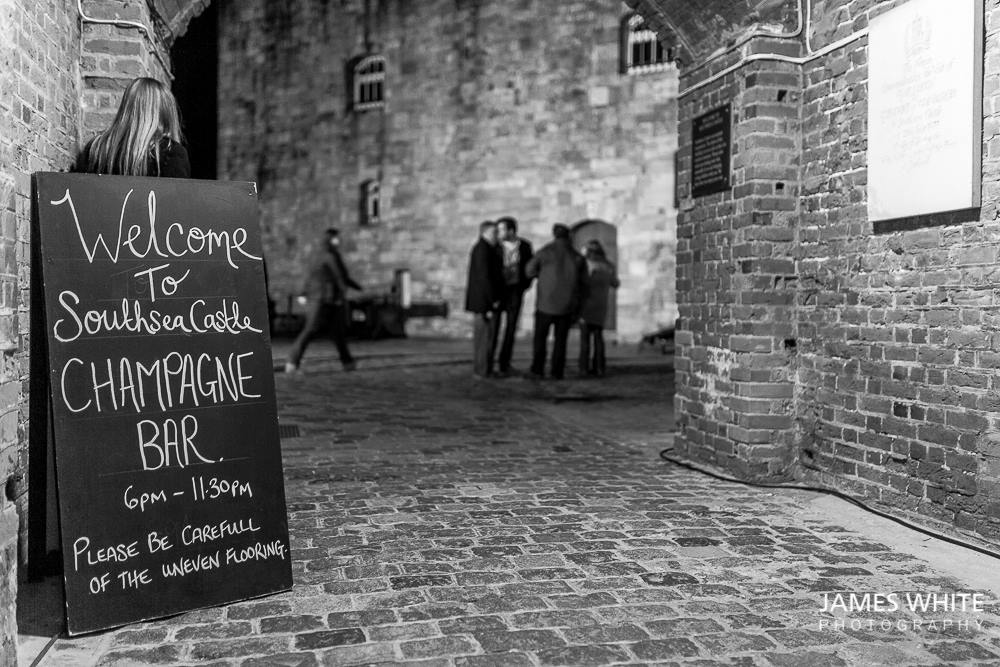 Welcome
To
Southsea Castle
CHAMPAGNE
BAR.
6PM - 11.30PM
PLEASE BE CAREFULL
OF THE UNEVEN FLOORING.
JAMES WHITE
PHOTOGRAPHY